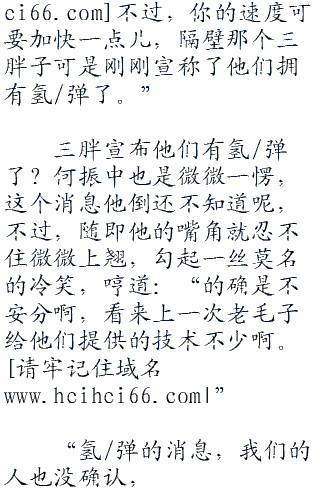 ci66.com]不过，你的速度可
要加快一点儿，隔壁那个三
胖子可是刚刚宣称了他们拥
有氢/弹了。”
三胖宣布他们有氢/弹
了？何振中也是微微一愣，
这个消息他倒还不知道呢，
不过，随即他的嘴角就忍不
住微微上翘，勾起一丝莫名
的冷笑，哼道：“的确是不
安分啊，看来上一次老毛子
给他们提供的技术不少啊。
[请牢记住域名
www.hcihci66.com|”
“氢/弹的消息，我们的
人也没确认，